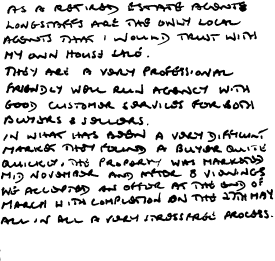 AS A RETIRED ESTATE AGENTS
LONGSTAFFS ARE THE ONLY LOCAL
AGENTS THAT I WOULD TRUST WITH
MY OWN HOUSE SALE.
THEY ARE A VERY PROFESSIONAL
FRIENDLY WELL RUN AGENCY WITH
GOOD CUSTOMER SERVICES FOR BOTH
BUYERS & SELLERS.
IN WHAT HAS BEEN A VERY DIFFICULT
MARKET THEY FOUND A BUYER QUITE
QUICKLY, THE PROPERTY WAS MARKETED
MID NOVEMBER AND AFTER 8 VIEWINGS
WE ACCEPTED AN OFFER AT THE END OF
MARCH WITH COMPLETION ON THE 27TH MAY
ALL IN ALL A VERY STRESS FREE PROCESS.